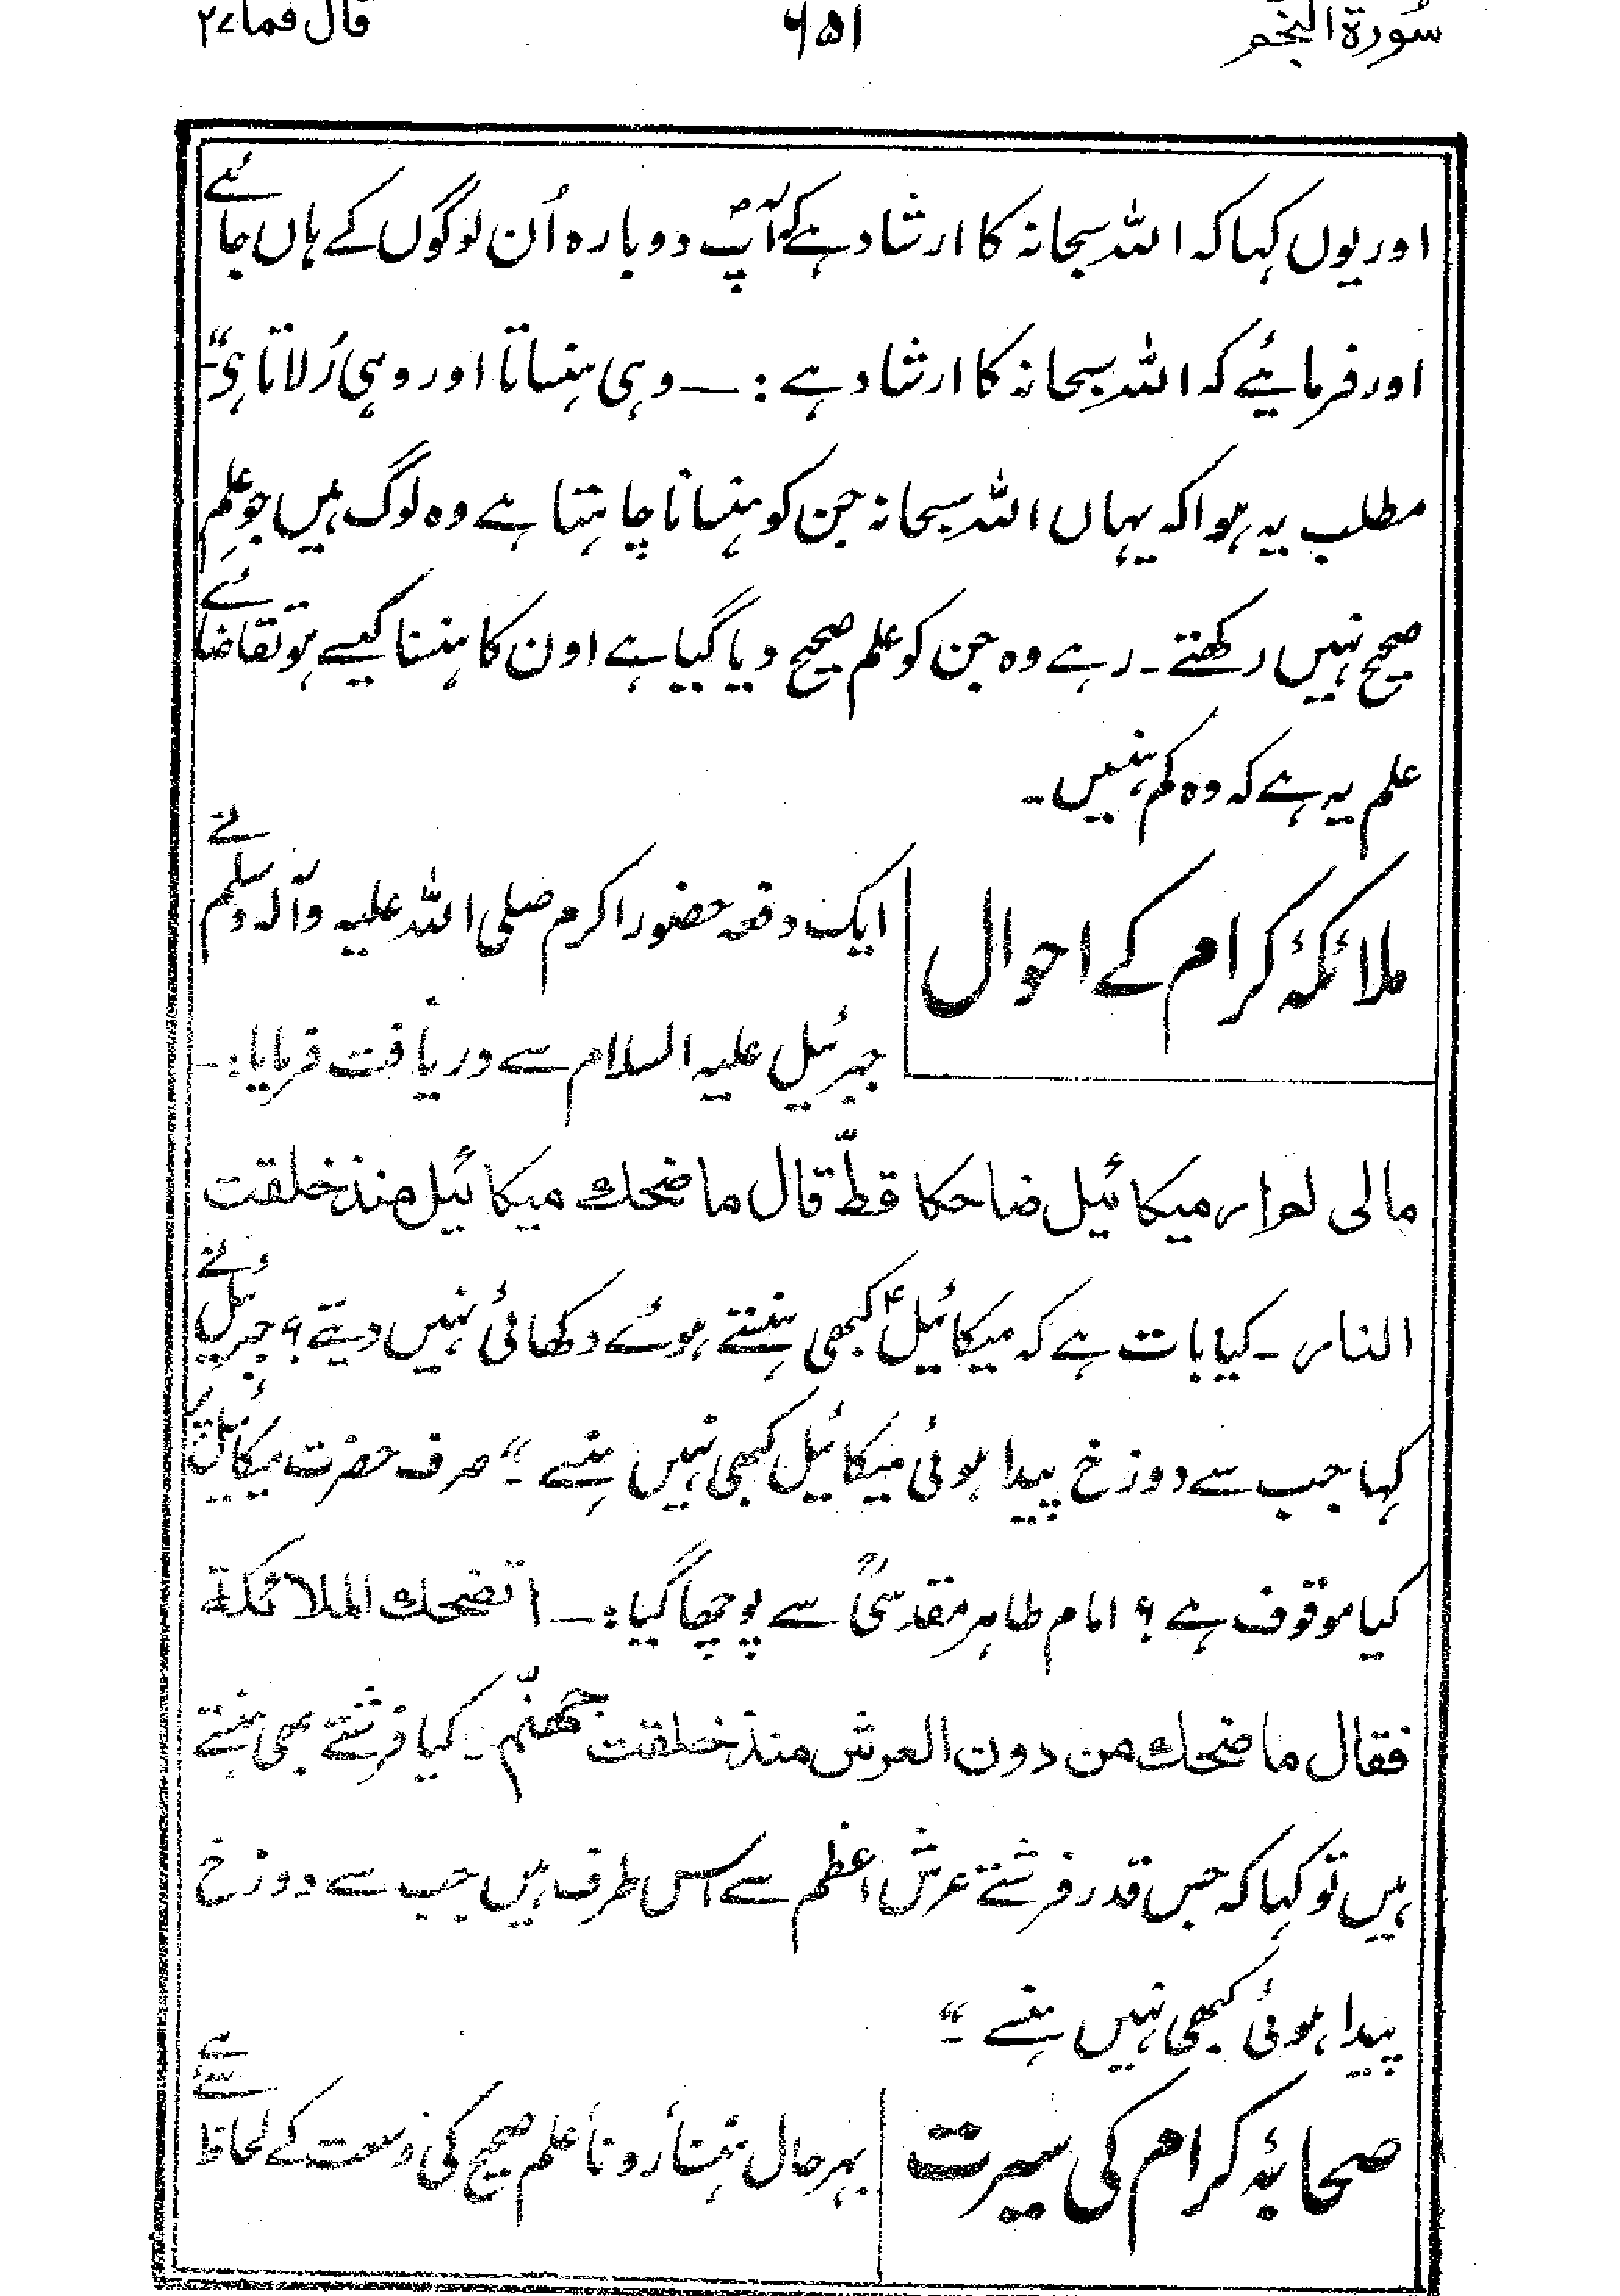 سُورۃ النجم ۶۵۱ قال فما ۲۷
اور یوں کہا کہ اللہ سبحانہ کا ارشاد ہے کہ آپؐ دوبارہ اُن لوگوں کے ہاں جائیے
اور فرمائیے کہ اللہ سبحانہ کا ارشاد ہے :ـــ وہی ہنساتا اور وہی رُلاتا ہی"۔
مطلب یہ ہوا کہ یہاں اللہ سبحانہ جن کو ہنسانا چاہتا ہے وہ لوگ ہیں جو علمِ
صحیح نہیں رکھتے۔ رہے وہ جن کو علم صحیح دیا گیا ہے اون کا ہنسنا کیسے ہو تقاضائے
علم یہ ہے کہ وہ کم ہنسیں۔
ملائکۂ کرام کے احوال
ایک دفعہ حضور اکرم صلی اللہ علیہ وآلہ وسلم نے
جبرئیل علیہ السلام سے دریافت فرمایا:۔
مالی لم ار میکائیل ضاحکا قطّ قال ما ضحك میکائیل منذ خلقت
النار۔ کیا بات ہے کہ میکائیلؑ کبھی ہنستے ہوئے دکھائی نہیں دیتے؟ جبرئیل نے
کہا جب سے دوزخ پیدا ہوئی میکائیل کبھی نہیں ہنسے"۔ صرف حضرت میکائیلؑ پر
کیا موقوف ہے؟ امام طاہر مقدسیؒ سے پوچھا گیا:ـــ اتضحك الملائکة
فقال ما ضحك من دون العرش منذ خلقت جھنّم۔ کیا فرشتے بھی ہنستے
ہیں تو کہا کہ جس قدر فرشتے عرش اعظم سے اس طرف ہیں جب سے دوزخ
پیدا ہوئی کبھی نہیں ہنسے"۔
صحابۂ کرام کی سیرت
بہرحال ہنسنا رونا علم صحیح کی وسعت کے لحاظ سے ہے